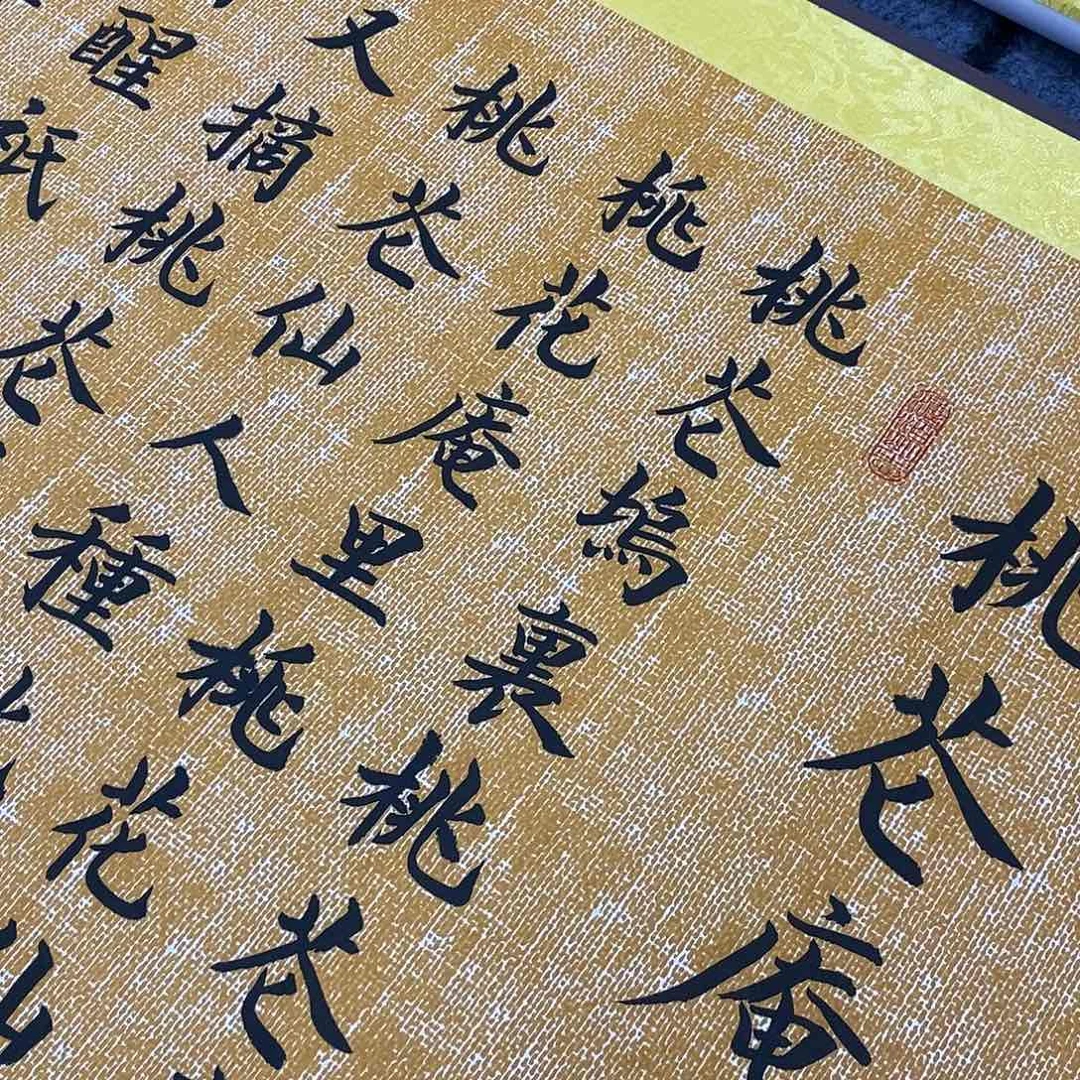 桃花庵
桃花塢裏桃花
桃花庵里桃花仙
桃花仙人種
又摘桃花
醒祇